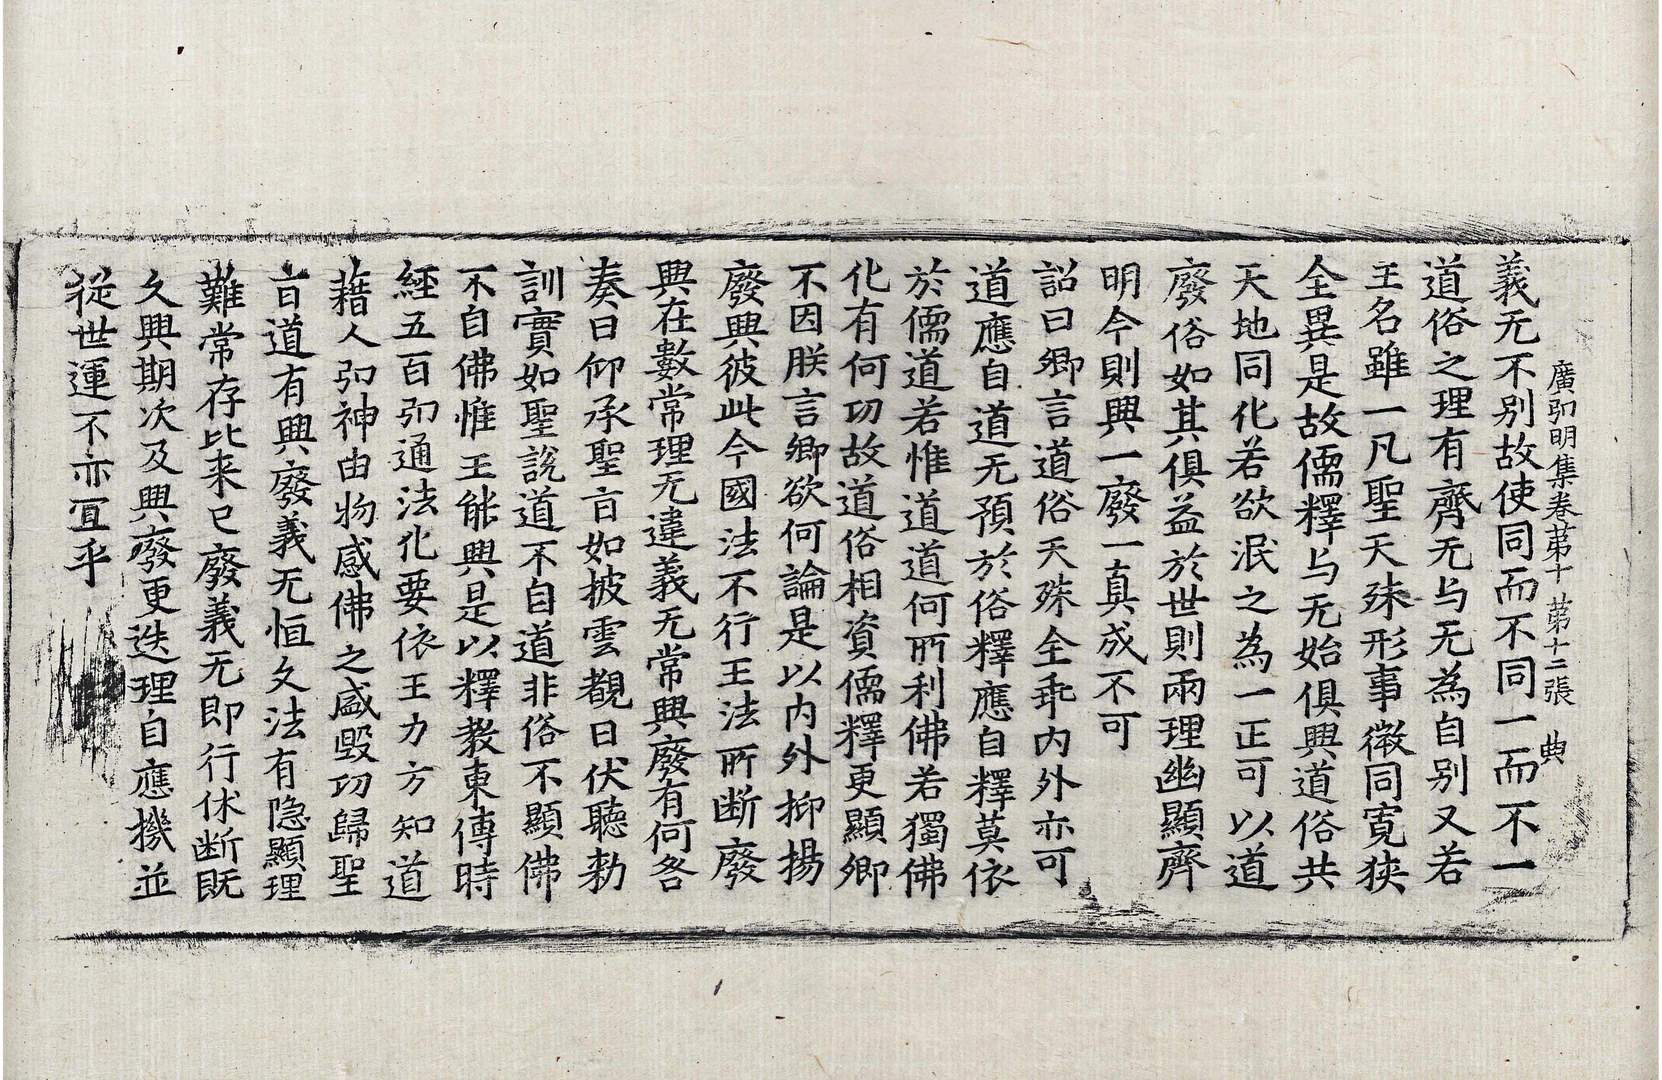 廣弘明集卷苐十　苐十二張　典
義无不別故使同而不同一而不一
道俗之理有齊无与无為自別又若
王名雖一凡聖天殊形事徵同寛狹
全異是故儒釋与无始俱興道俗共
天地同化若欲泯之為一正可以道
廢俗如其俱益於世則兩理幽顯齊
明今則興一廢一真成不可
詔曰卿言道俗天殊全乖內外亦可
道應自道无預於俗釋應自釋莫依
於儒道若惟道道何所利佛若獨佛
化有何功故道俗相資儒釋更顯卿
不因朕言卿欲何論是以內外抑揚
廢興彼此今國法不行王法所断廢
興在數常理无違義无常興廢有何咎
奏曰仰承聖旨如披雲覩日伏聽勑
訓實如聖說道不自道非俗不顯佛
不自佛惟王能興是以釋教東傳時
經五百弘通法化要依王力方知道
藉人弘神由物感佛之盛毀功歸聖
旨道有興廢義无恒久法有隐顯理
難常存比来已廢義无即行休断旣
久興期次及興廢更迭理自應機並
從世運不亦宜乎